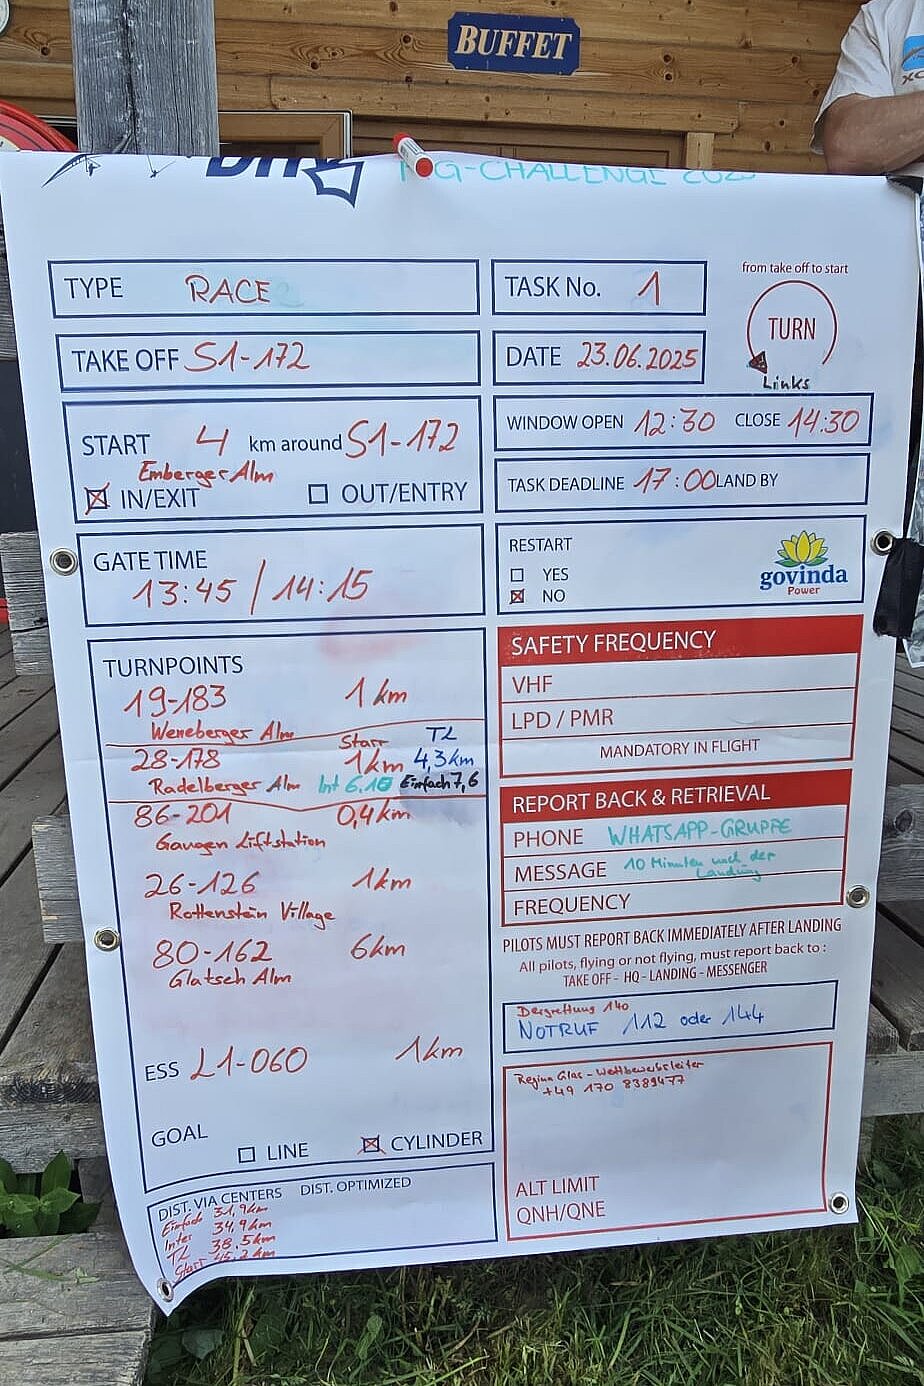 BUFFET
G-CHALLENGE
TYPE RACE
TASK No. 1
from take off to start
TURN
Links
TAKE OFF S1-172
DATE 23.06.2025
START 4 km around S1-172
Emberger Alm
IN/EXIT OUT/ENTRY
WINDOW OPEN 12:30 CLOSE 14:30
TASK DEADLINE 17:00 LAND BY
GATE TIME
13:45 / 14:15
RESTART
YES
NO
govinda
Power
TURNPOINTS
19-183 1km
Weneberger Alm
Starr TL
28-178 1km 4,3km
Radelberger Alm Int 6.1 Einfach 7,6
86-201 0,4km
Gaugen Liftstation
26-126 1km
Rottenstein Village
80-162 6km
Glatsch Alm
ESS L1-060 1km
GOAL
LINE CYLINDER
DIST. VIA CENTERS DIST. OPTIMIZED
Einfach 31,9km
Inter 34,9km
TL 38.5km
Starr 45.2km
SAFETY FREQUENCY
VHF
LPD / PMR
MANDATORY IN FLIGHT
REPORT BACK & RETRIEVAL
PHONE WHATSAPP-GRUPPE
MESSAGE 10 Minuten nach der
Landung
FREQUENCY
PILOTS MUST REPORT BACK IMMEDIATELY AFTER LANDING
All pilots, flying or not flying, must report back to :
TAKE OFF - HQ - LANDING - MESSENGER
Bergrettung 140
NOTRUF 112 oder 144
Regina Glas - Wettbewerbsleiter
+49 170 8389477
ALT LIMIT
QNH/QNE